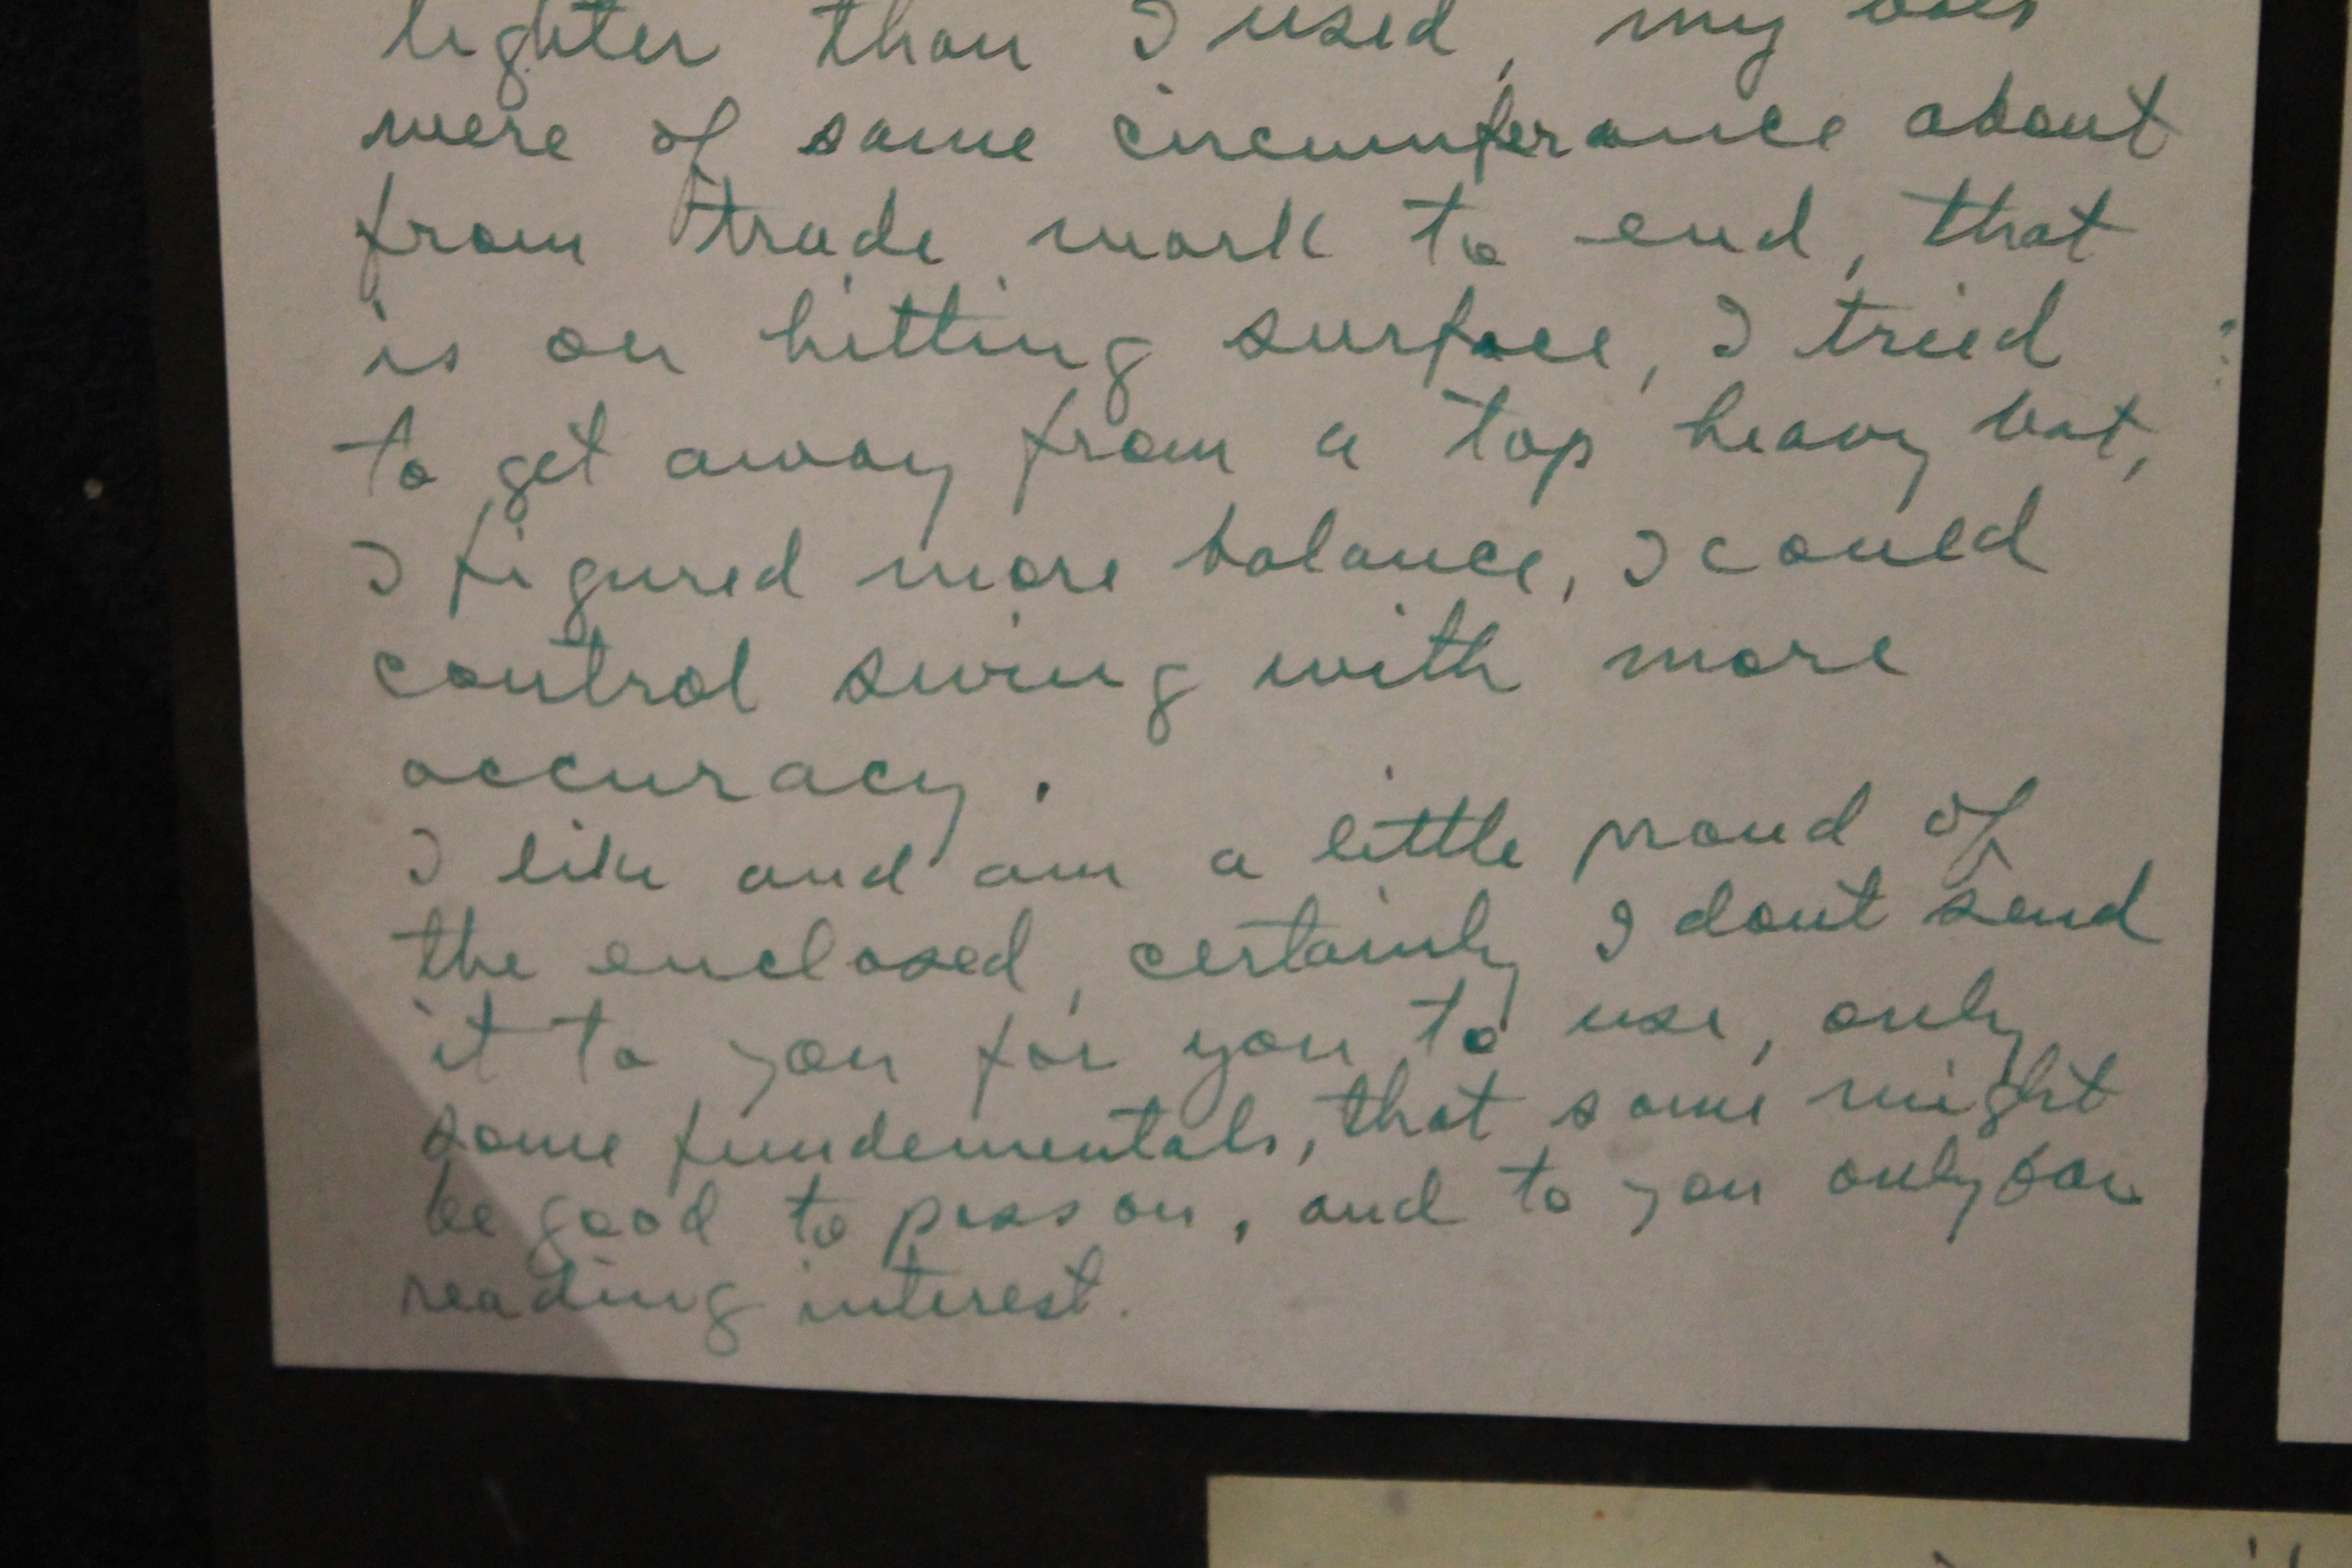 lighter than I used, my bats
were of same circumferance about
from trade mark to end, that
is on hitting surface, I tried
to get away from a top heavy bat,
I figured more balance, I could
control swing with more
accuracy.
I like and am a little proud of
the enclosed, certainly I dont send
it to you for you to use, only
some fundementals, that some might
be good to pass on, and to you only for
reading interest.